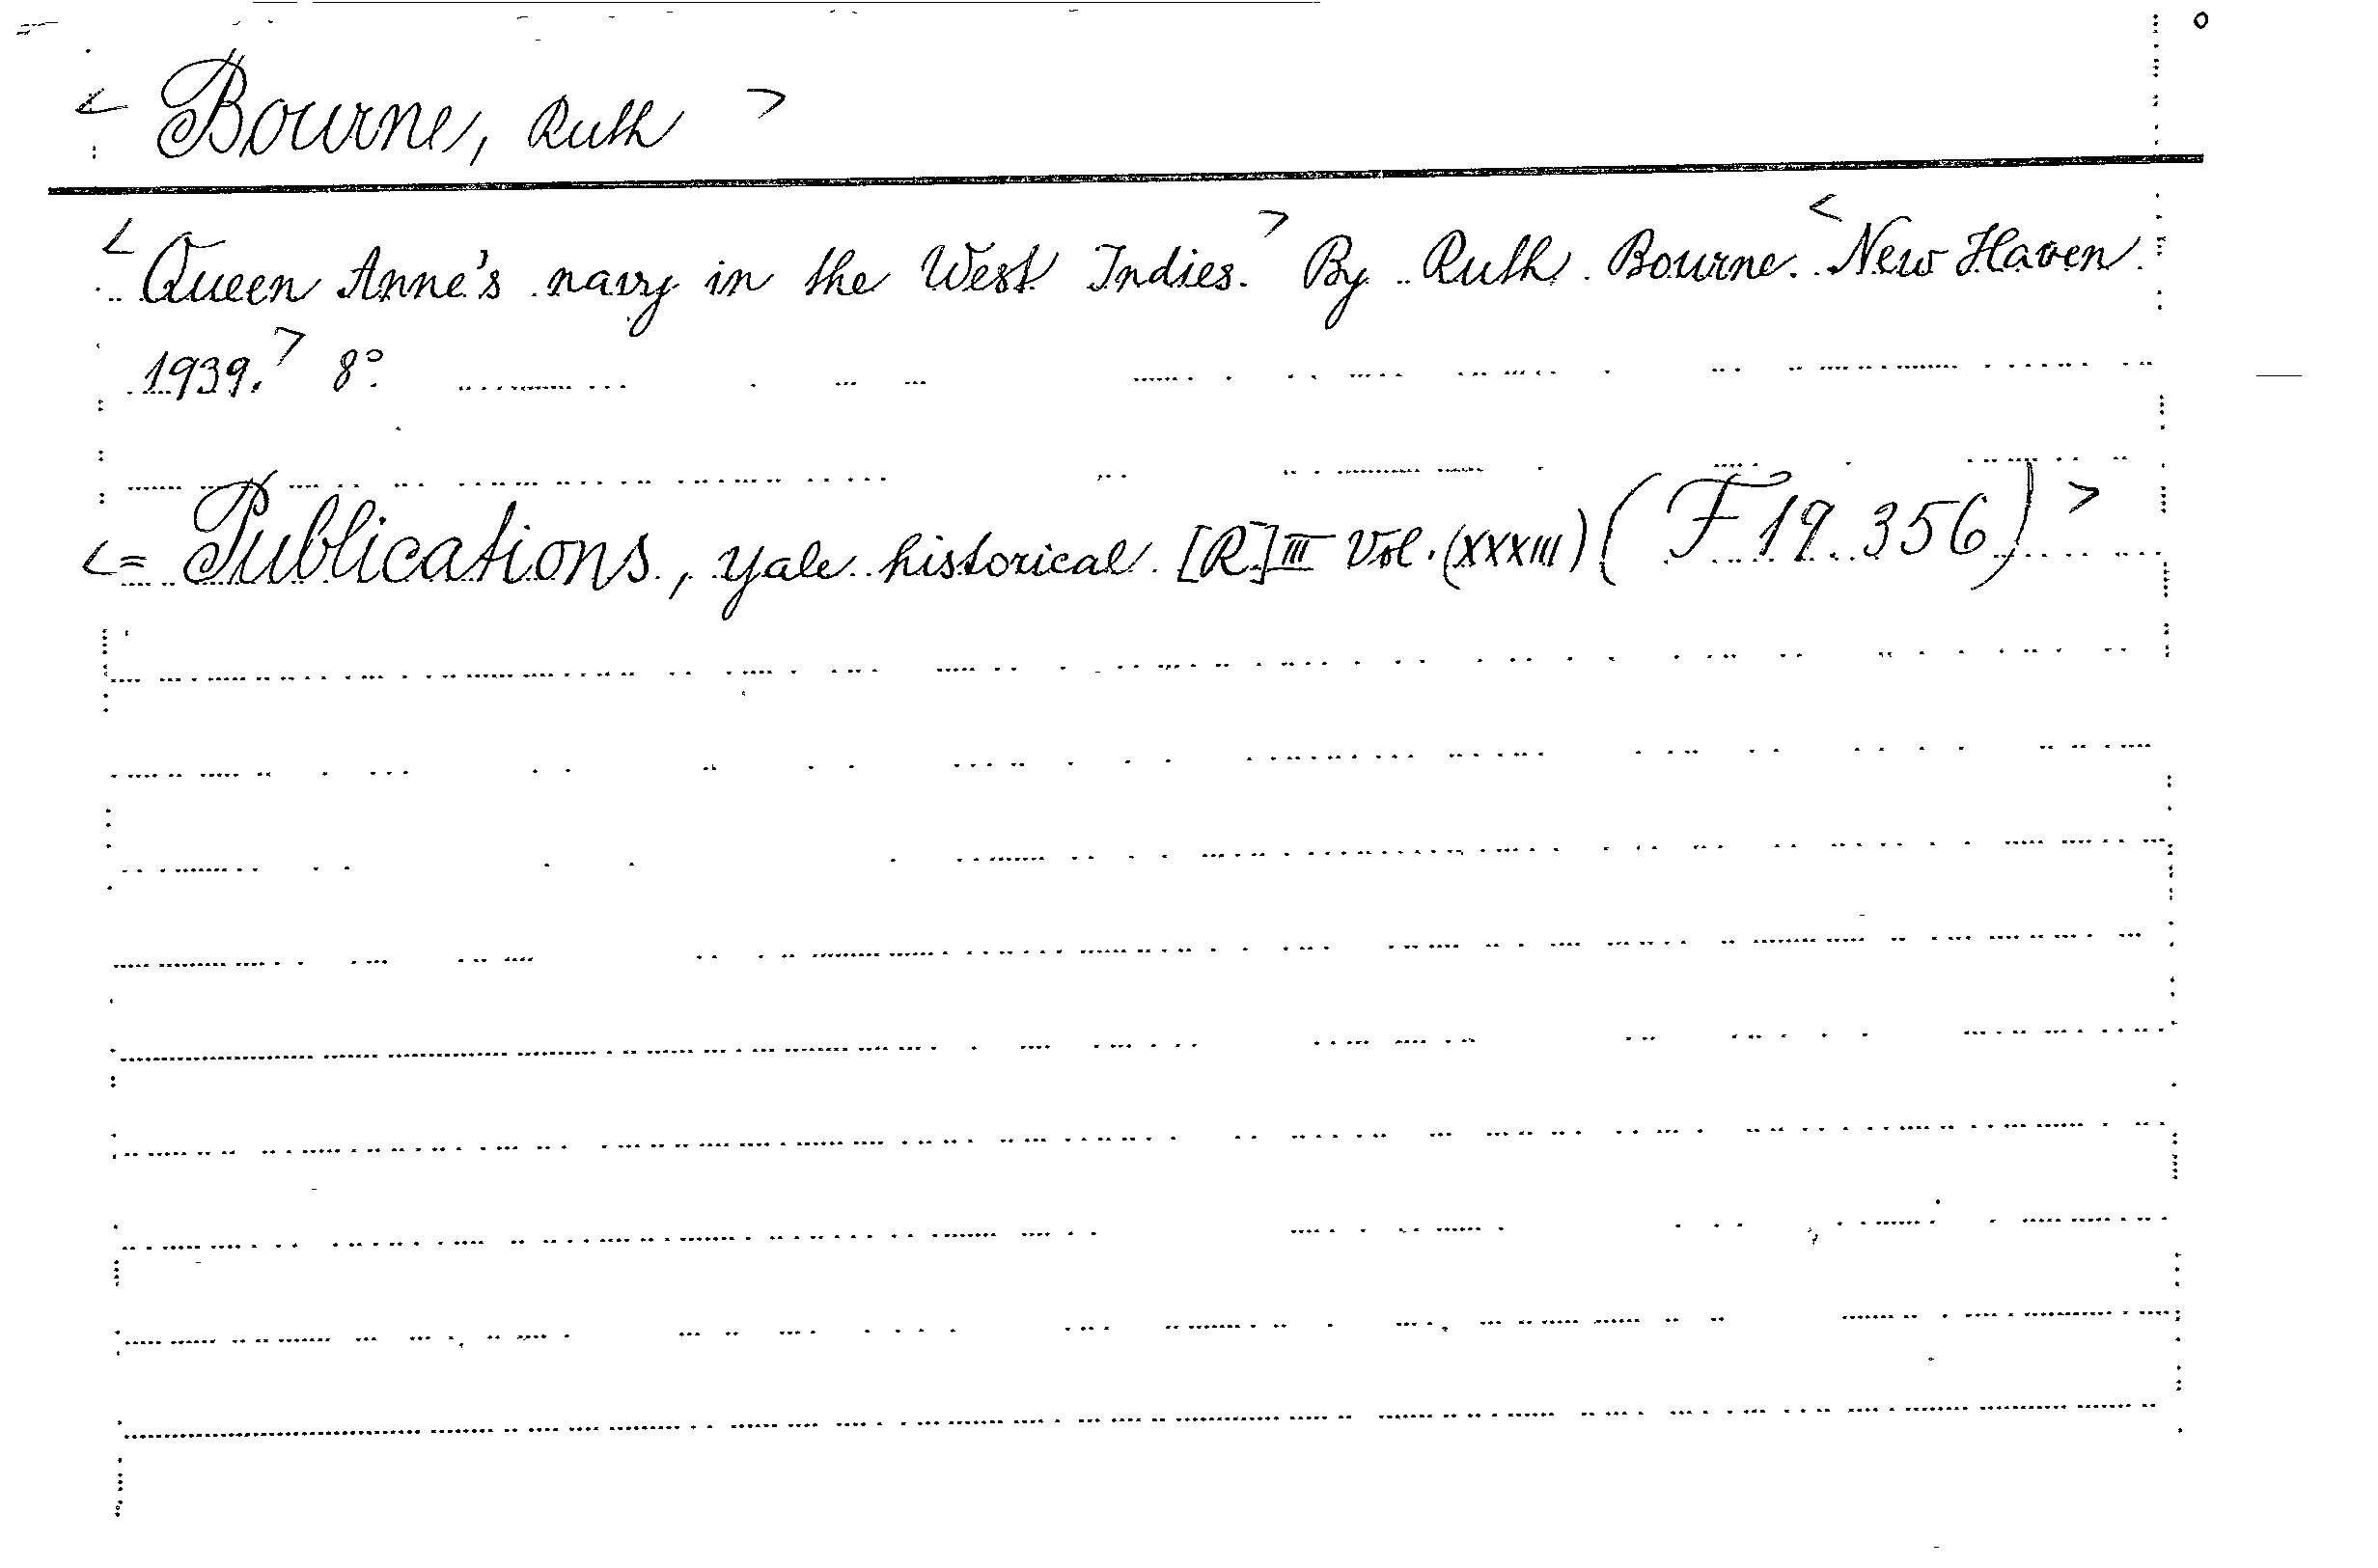 < Bourne, Ruth >
< Queen Anne's navy in the West Indies. > By Ruth Bourne. < New Haven
1939. > 8°.
<= Publications, Yale historical [R] III Vol. (XXXIII) (F 19 356) >